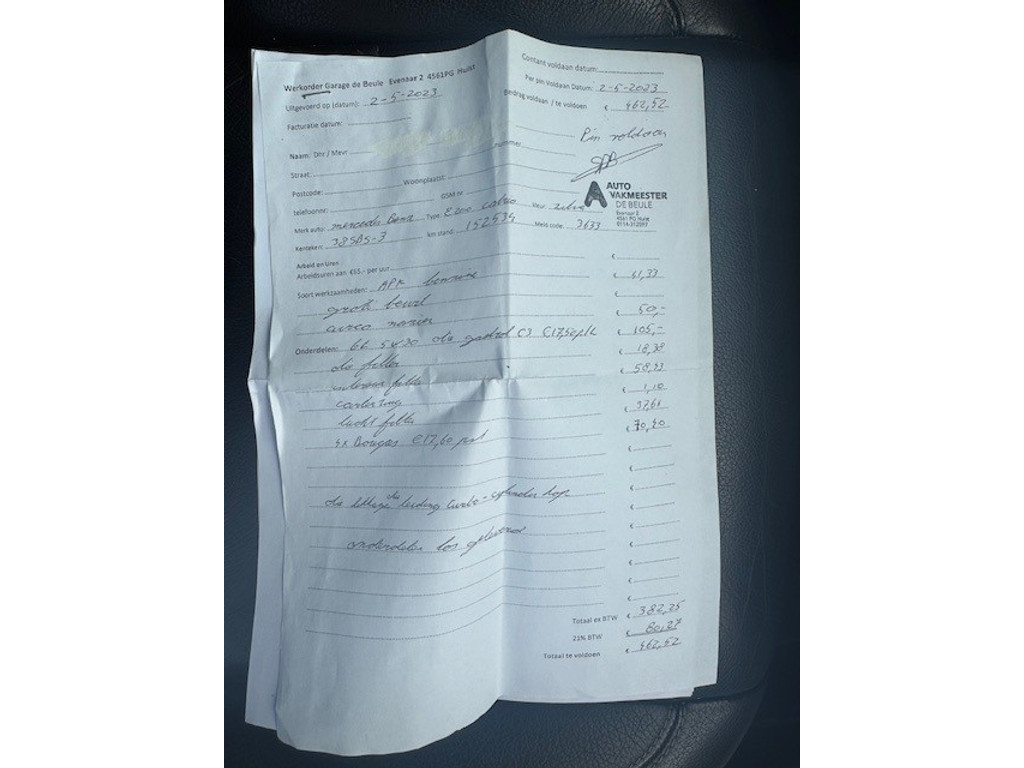 Werkorder Garage de Beule Evenaar 2 4561PG Hulst
Contant voldaan datum:
Uitgevoerd op (datum): 2-5-2023
Per pin Voldaan Datum: 2-5-2023
Facturatie datum:
Bedrag voldaan / te voldoen € 462,52
Pin voldaan
Naam: Dhr / Mevr
nummer
Straat:
Postcode: Woonplaats:
AUTO
VAKMEESTER
DE BEULE
Evenaar 2
4561 PG Hulst
0114-312097
telefoonnr: GSM nr
Merk auto: mercedes Benz Type: E200 cabrio Kleur: zilver
Kenteken: 38SBS-3 km stand: 152534 Meld code: 3633
Arbeid en Uren
Arbeidsuren aan €55,- per uur €
Soort werkzaamheden: APK benzine € 41,33
grote beurt €
airco € 50,-
Onderdelen: 6L 5W30 olie C3 €17,50 p/L € 105,-
olie filter € 18,38
interieur filter € 58,93
carterring € 1,10
lucht filter € 37,61
4x Bougies €17,60 p/st € 70,40
€
€
olie lekkage olie leiding turbo - cylinder kop €
€
onderdelen los geleverd €
€
€
€
€
Totaal ex BTW € 382,25
21% BTW € 80,27
Totaal te voldoen € 462,52